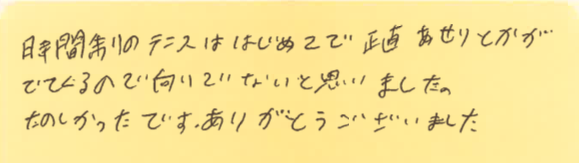 時間制のテニスははじめてで 正直 あせりとかが
でてくるので向いてないと思いました。
たのしかったです。ありがとうございました